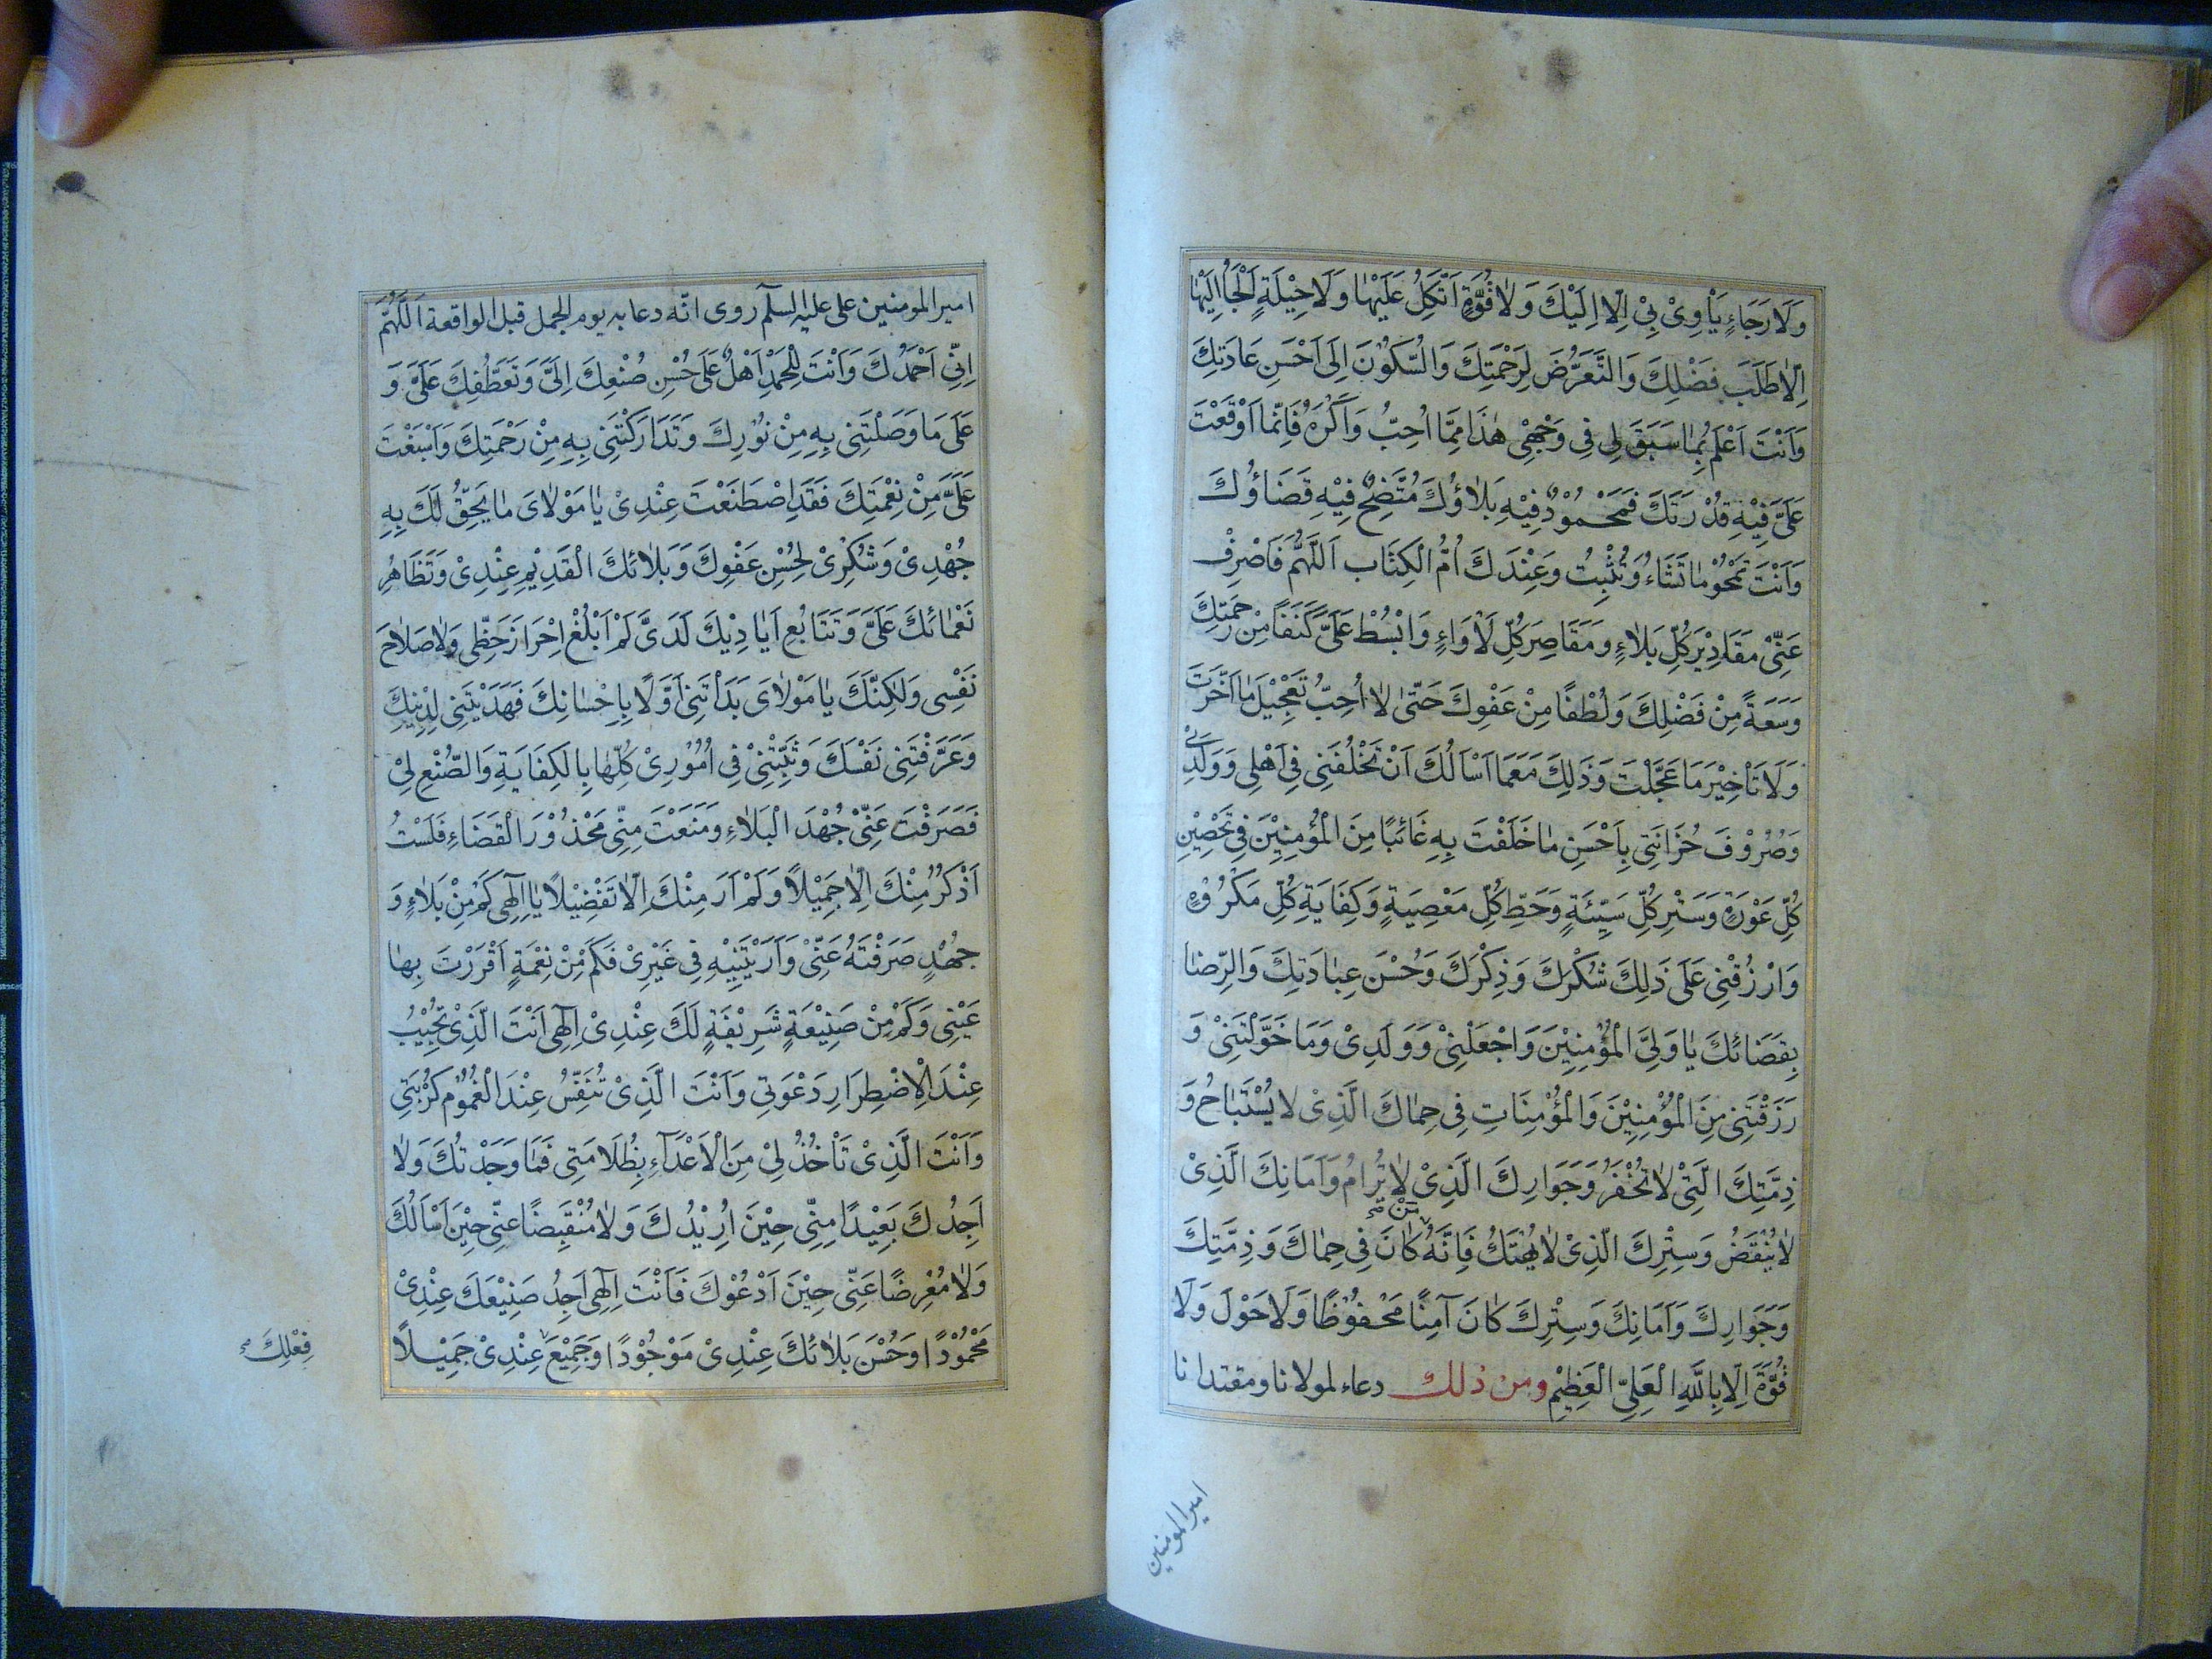 وَلَا رَجَاءٍ يَأْوِيْ بِيْ اِلَّا اِلَيْكَ وَلَا قُوَّةٍ اَتَّكِلُ عَلَيْهَا وَلَا حِيْلَةٍ اَلْجَأُ اِلَيْهَا
اِلَّا طَلَبَ فَضْلِكَ وَالتَّعَرُّضَ لِرَحْمَتِكَ وَالسُّكُوْنَ اِلَى اَحْسَنِ عَادَتِكَ
وَاَنْتَ اَعْلَمُ بِمَا سَبَقَ لِي فِي وَجْهِيْ هٰذَا مِمَّا اُحِبُّ وَاَكْرَهُ فَاِنَّمَا اَوْقَعْتَ
عَلَيَّ فِيْهِ قُدْرَتَكَ فَمَحْمُوْدٌ فِيْهِ بَلَاؤُكَ مُتَّضِحٌ فِيْهِ قَضَاؤُكَ
وَاَنْتَ تَمْحُوْ مَا تَشَاءُ وَتُثْبِتُ وَعِنْدَكَ اُمُّ الْكِتَابِ اَللّٰهُمَّ فَاصْرِفْ
عَنِّيْ مَقَادِيْرَ كُلِّ بَلَاءٍ وَمَقَاصِرَ كُلِّ لَأْوَاءٍ وَابْسُطْ عَلَيَّ كَنَفًا مِنْ رَحْمَتِكَ
وَسَعَةً مِنْ فَضْلِكَ وَلُطْفًا مِنْ عَفْوِكَ حَتّٰى لَا اُحِبَّ تَعْجِيْلَ مَا اَخَّرْتَ
وَلَا تَأْخِيْرَ مَا عَجَّلْتَ وَذٰلِكَ مَعَمَا اَسْأَلُكَ اَنْ تَخْلُفَنِي فِي اَهْلِي وَوَلَدِيْ
وَصُرُوْفَ حُزَانَتِي بِاَحْسَنِ مَا خَلَفْتَ بِهِ غَائِبًا مِنَ الْمُؤْمِنِيْنَ فِي تَحْصِيْنِ
كُلِّ عَوْرَةٍ وَسَتْرِ كُلِّ سَيِّئَةٍ وَحَطِّ كُلِّ مَعْصِيَةٍ وَكِفَايَةِ كُلِّ مَكْرُوْهٍ
وَارْزُقْنِي عَلَى ذٰلِكَ شُكْرَكَ وَذِكْرَكَ وَحُسْنَ عِبَادَتِكَ وَالرِّضَا
بِقَضَائِكَ يَا وَلِيَّ الْمُؤْمِنِيْنَ وَاجْعَلْنِيْ وَوَلَدِيْ وَمَا خَوَّلْتَنِيْ وَ
رَزَقْتَنِي مِنَ الْمُؤْمِنِيْنَ وَالْمُؤْمِنَاتِ فِي حِمَاكَ الَّذِيْ لَا يُسْتَبَاحُ وَ
ذِمَّتِكَ الَّتِيْ لَا تُخْفَرُ وَجَوَارِكَ الَّذِيْ لَا يُرَامُ وَاَمَانِكَ الَّذِيْ
لَا يُنْقَضُ وَسِتْرِكَ الَّذِيْ لَا يُهْتَكُ فَاِنَّهُ مَنْ كَانَ فِي حِمَاكَ وَذِمَّتِكَ
وَجَوَارِكَ وَاَمَانِكَ وَسِتْرِكَ كَانَ آمِنًا مَحْفُوْظًا وَلَا حَوْلَ وَلَا
قُوَّةَ اِلَّا بِاللّٰهِ الْعَلِيِّ الْعَظِيْمِ ومن ذلك دعاء لمولانا ومقتدانا
امير المومنين
امير المومنين على عليه السلم روى انّه دعا به يوم الجمل قبل الواقعة اَللّٰهُمَّ
اِنِّي اَحْمَدُكَ وَاَنْتَ لِلْحَمْدِ اَهْلٌ عَلَى حُسْنِ صُنْعِكَ اِلَيَّ وَتَعَطُّفِكَ عَلَيَّ وَ
عَلَى مَا وَصَلْتَنِي بِهِ مِنْ نُوْرِكَ وَتَدَارَكْتَنِي بِهِ مِنْ رَحْمَتِكَ وَاَسْبَغْتَ
عَلَيَّ مِنْ نِعْمَتِكَ فَقَدِ اصْطَنَعْتَ عِنْدِيْ يَا مَوْلَايَ مَا يَحِقُّ لَكَ بِهِ
جُهْدِيْ وَشُكْرِيْ لِحُسْنِ عَفْوِكَ وَبَلَائِكَ الْقَدِيْمِ عِنْدِيْ وَتَظَاهُرِ
نَعْمَائِكَ عَلَيَّ وَتَتَابُعِ اَيَادِيْكَ لَدَيَّ لَمْ اَبْلُغْ اِحْرَازَ حَظِّي وَلَا صَلَاحَ
نَفْسِي وَلٰكِنَّكَ يَا مَوْلَايَ بَدَأْتَنِي اَوَّلًا بِاِحْسَانِكَ فَهَدَيْتَنِي لِدِيْنِكَ
وَعَرَّفْتَنِي نَفْسَكَ وَثَبَّتْنِيْ فِي اُمُوْرِيْ كُلِّهَا بِالْكِفَايَةِ وَالصُّنْعِ لِيْ
فَصَرَفْتَ عَنِّيْ جُهْدَ الْبَلَاءِ وَمَنَعْتَ مِنِّي مَحْذُوْرَ الْقَضَاءِ فَلَسْتُ
اَذْكُرُ مِنْكَ اِلَّا جَمِيْلًا وَلَمْ اَرَ مِنْكَ اِلَّا تَفْضِيْلًا يَا اِلٰهِي كَمْ مِنْ بَلَاءٍ وَ
جُهْدٍ صَرَفْتَهُ عَنِّيْ وَاَرَيْتَنِيْهِ فِي غَيْرِيْ فَكَمْ مِنْ نِعْمَةٍ اَقْرَرْتَ بِهَا
عَيْنِي وَكَمْ مِنْ صَنِيْعَةٍ شَرِيْفَةٍ لَكَ عِنْدِيْ اِلٰهِي اَنْتَ الَّذِيْ تُجِيْبُ
عِنْدَ الْاِضْطِرَارِ دَعْوَتِي وَاَنْتَ الَّذِيْ تُنَفِّسُ عِنْدَ الْغُمُوْمِ كُرْبَتِي
وَاَنْتَ الَّذِيْ تَأْخُذُ لِيْ مِنَ الْاَعْدَاءِ بِظُلَامَتِي فَمَا وَجَدْتُكَ وَلَا
اَجِدُكَ بَعِيْدًا مِنِّي حِيْنَ اُرِيْدُكَ وَلَا مُنْقَبِضًا عَنِّي حِيْنَ اَسْأَلُكَ
وَلَا مُعْرِضًا عَنِّي حِيْنَ اَدْعُوْكَ فَاَنْتَ اِلٰهِي اَجِدُ صَنِيْعَكَ عِنْدِيْ
مَحْمُوْدًا وَحُسْنَ بَلَائِكَ عِنْدِيْ مَوْجُوْدًا وَجَمِيْعَ عِنْدِيْ جَمِيْلًا
فِعْلِكَ